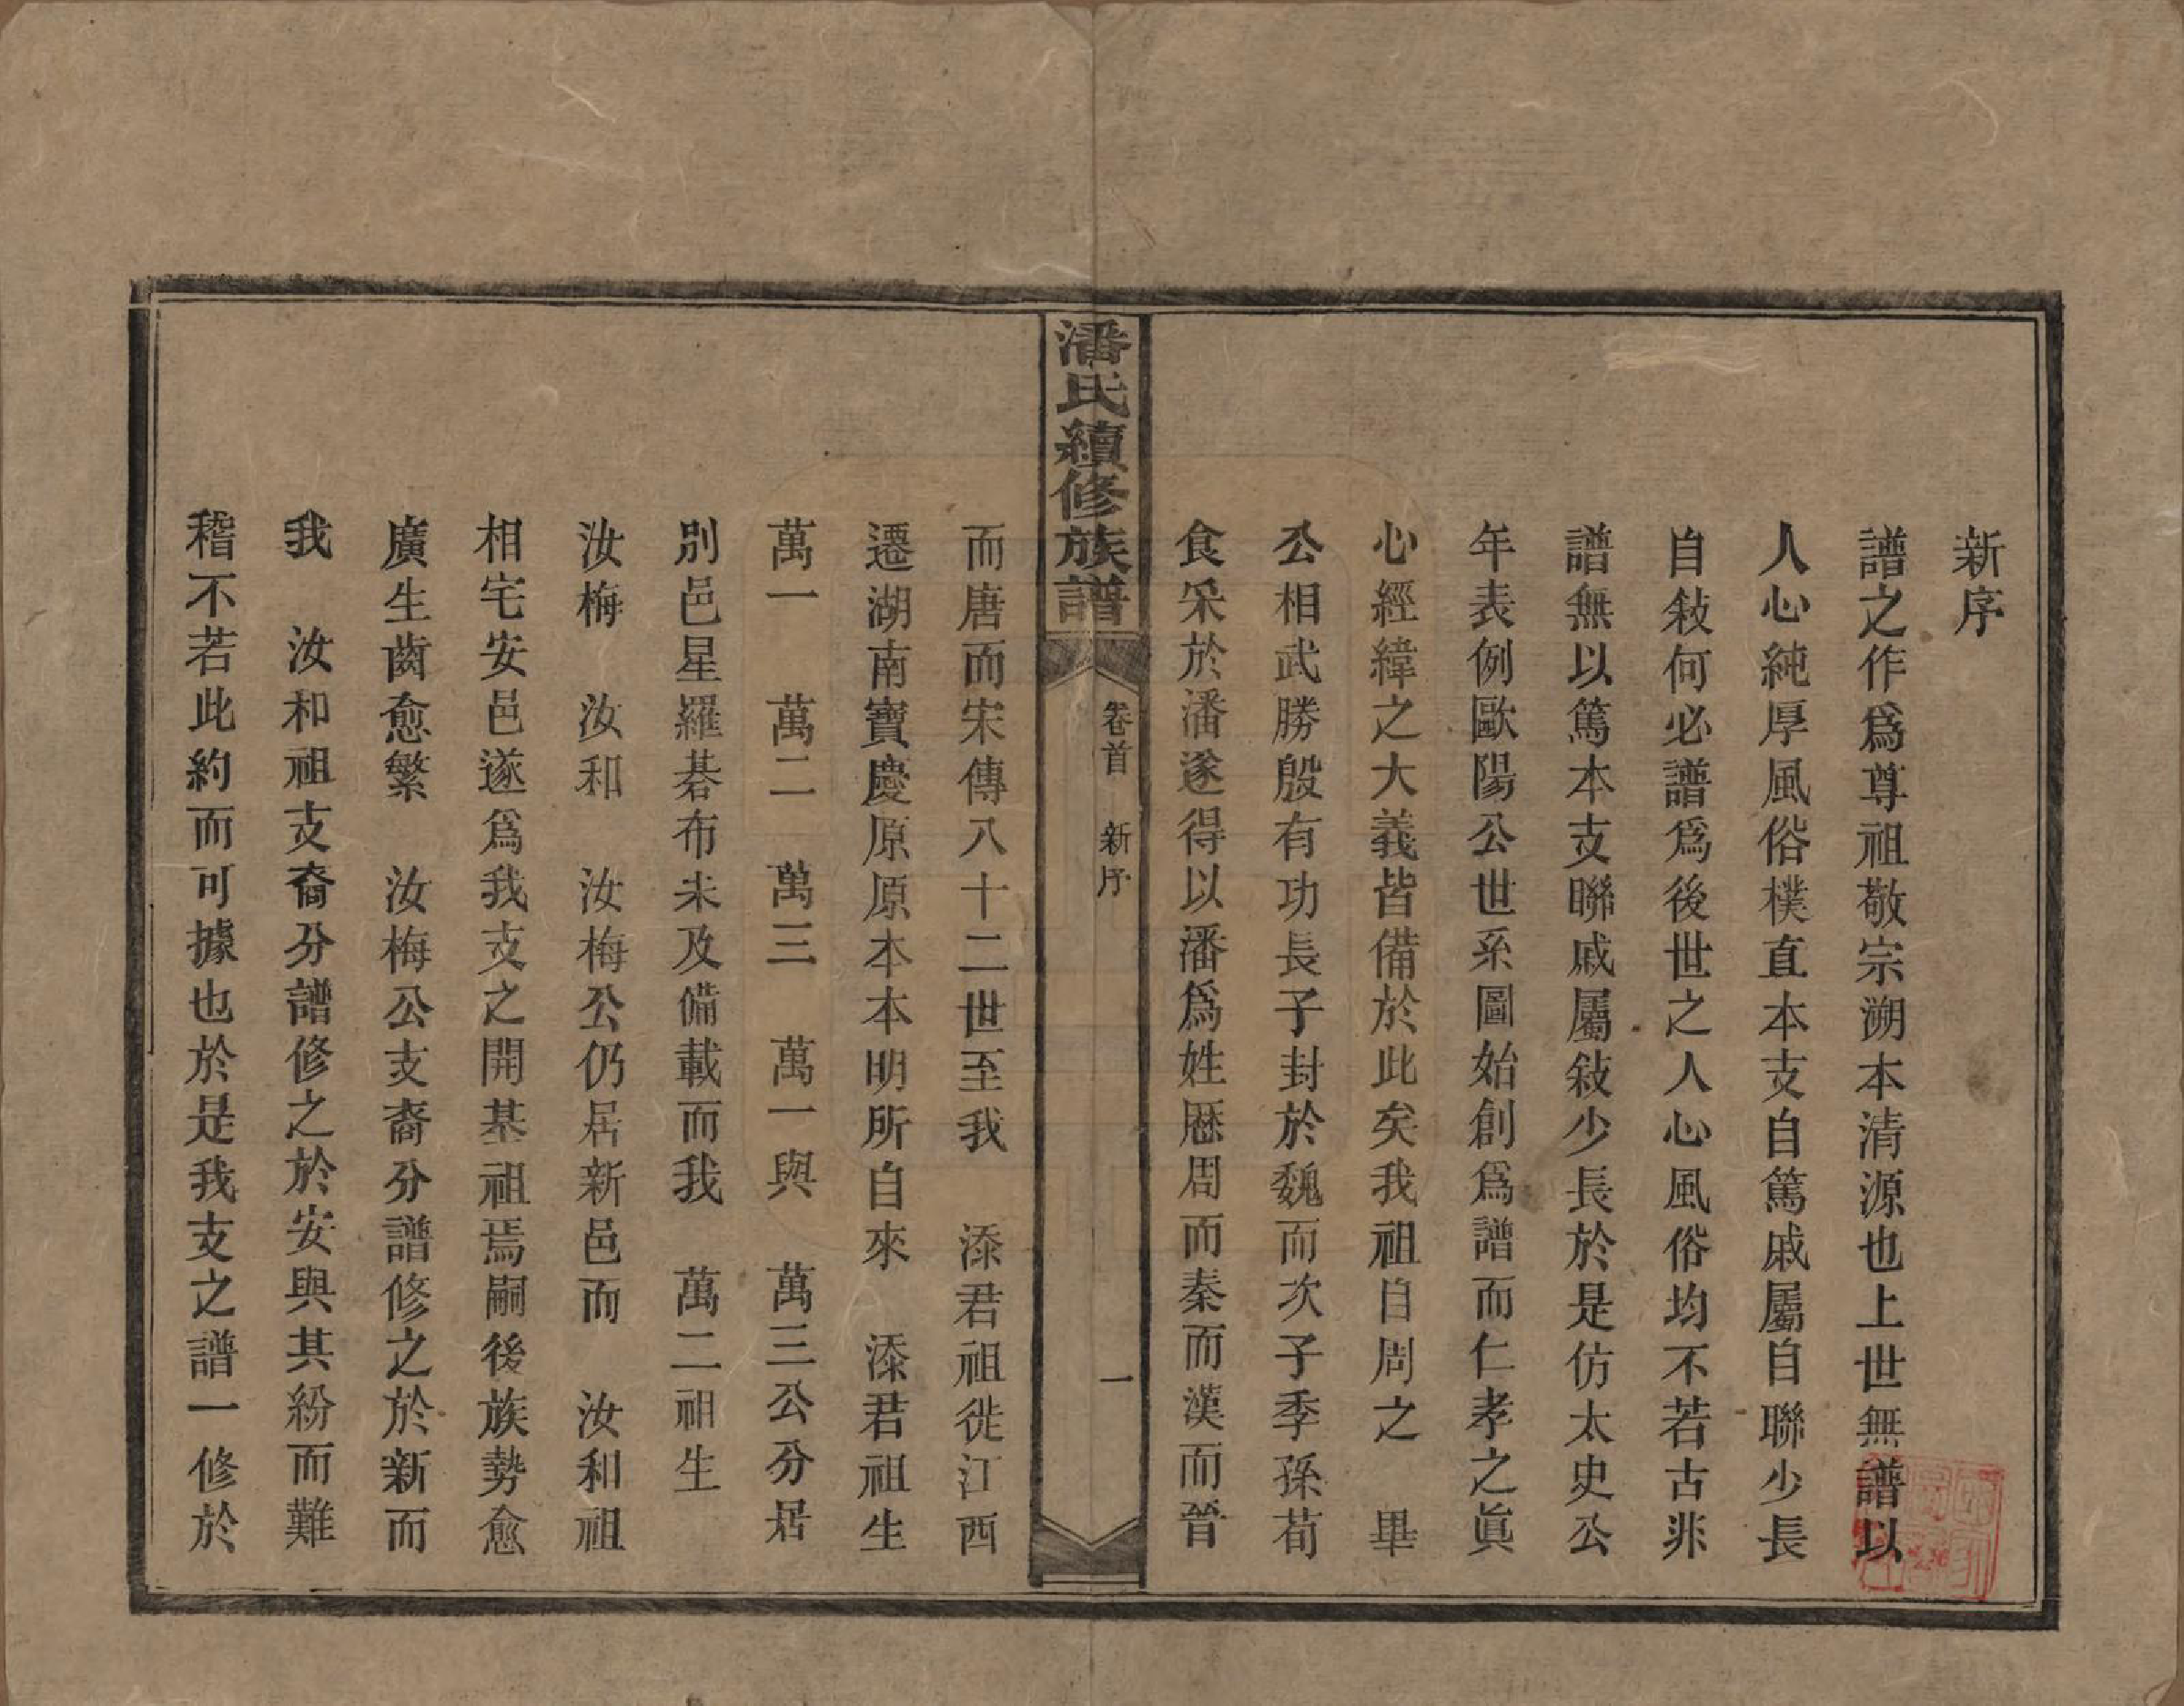 新序
譜之作爲尊祖敬宗溯本清源也上世無譜以
人心純厚風俗樸直本支自篤戚屬自聯少長
自敍何必譜爲後世之人心風俗均不若古非
譜無以篤本支聯戚屬敍少長於是仿太史公
年表例歐陽公世系圖始創爲譜而仁孝之眞
心經緯之大義皆備於此矣我祖自周之　畢
公相武勝殷有功長子封於魏而次子季孫荀
食采於潘遂得以潘爲姓歷周而秦而漢而晉
潘氏續修族譜
卷首　新序
一
而唐而宋傳八十二世至我　添君祖徙江西
遷湖南寶慶原原本本明所自來　添君祖生
萬一　萬二　萬三　萬一與　萬三公分居
別邑星羅碁布未及備載而我　萬二祖生
汝梅　汝和　汝梅公仍居新邑而　汝和祖
相宅安邑遂爲我支之開基祖焉嗣後族勢愈
廣生齒愈繁　汝梅公支裔分譜修之於新而
我　汝和祖支裔分譜修之於安與其紛而難
稽不若此約而可據也於是我支之譜一修於